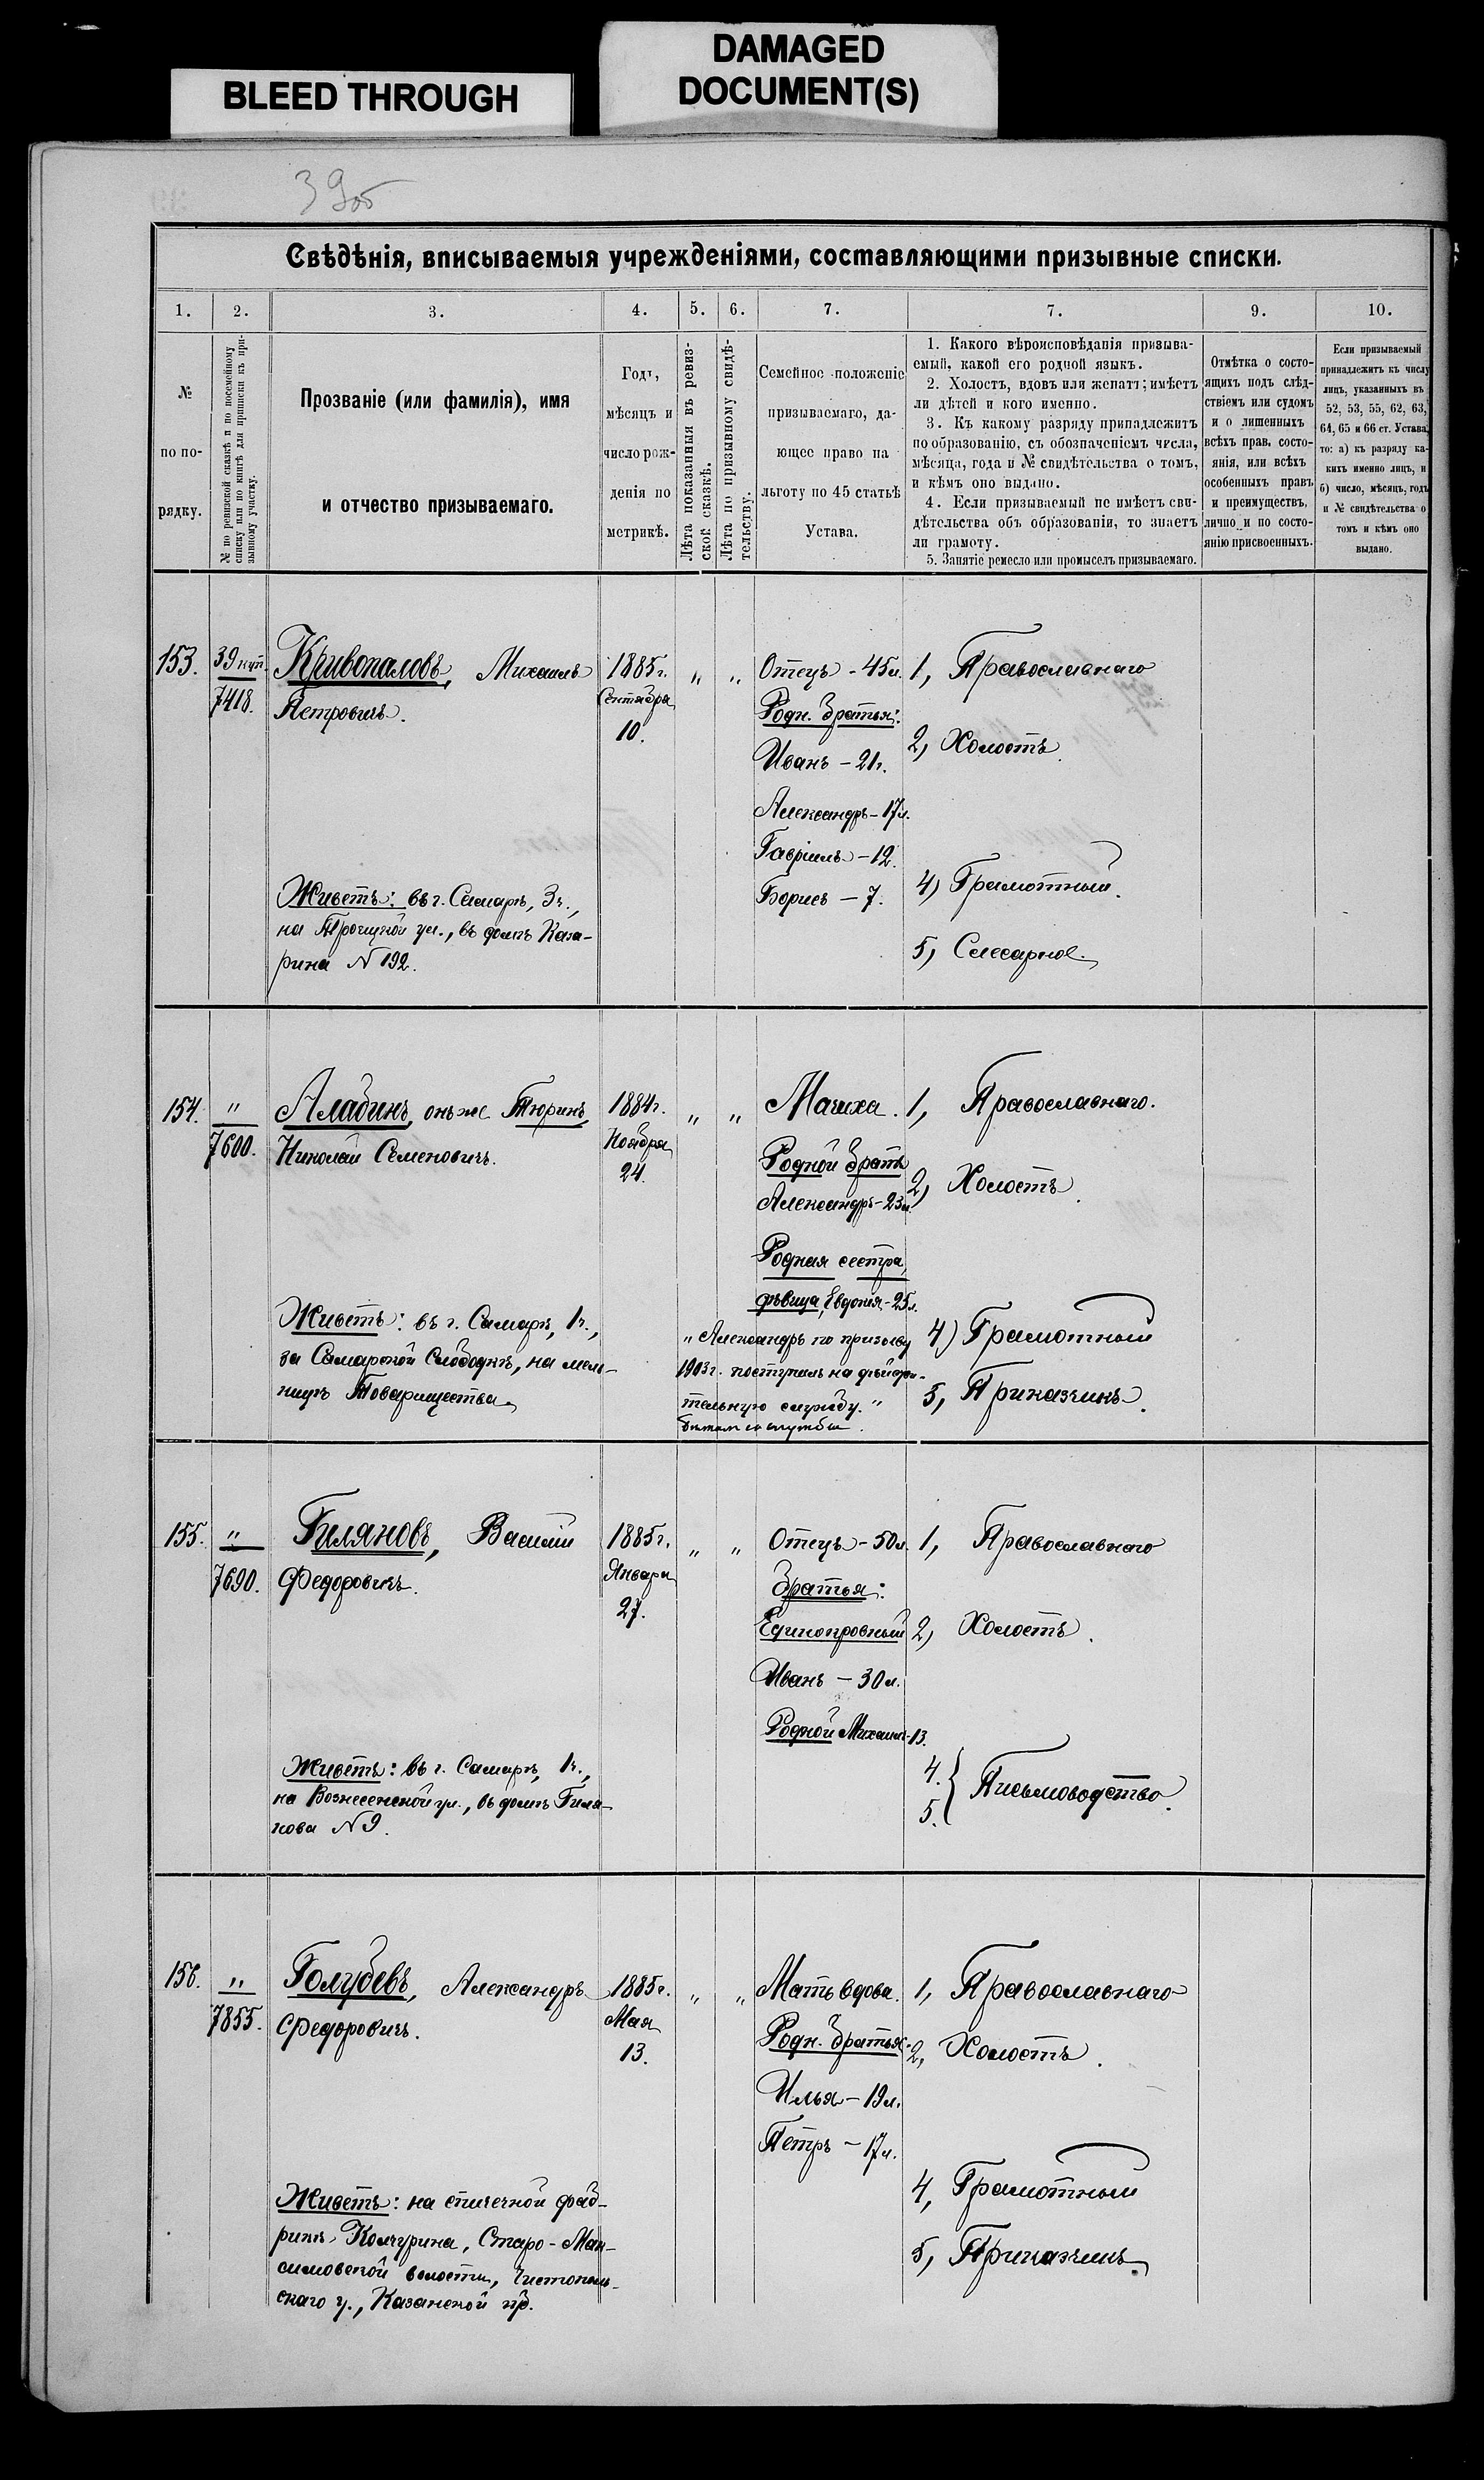 DAMAGED
DOCUMENT(S)
BLEED THROUGH
39об
Свѣдѣнія, вписываемыя учрежденіями, составляющими призывные списки.
1. 2. 3. 4. 5. 6. 7. 7. 9. 10.
№
по по-
рядку.
№ по ревизской сказкѣ и по посемейному
списку или по книгѣ для приписки къ при-
зывному участку.
Прозваніе (или фамилія), имя
и отчество призываемаго.
Годъ,
мѣсяцъ и
число рож-
денія по
метрикѣ.
Лѣта показанныя въ ревиз-
ской сказкѣ.
Лѣта по призывному свидѣ-
тельству.
Семейное положеніе
призываемаго, да-
ющее право на
льготу по 45 статьѣ
Устава.
1. Какого вѣроисповѣданія призыва-
емый, какой его родной языкъ.
2. Холостъ, вдовъ или женатъ; имѣетъ
ли дѣтей и кого именно.
3. Къ какому разряду принадлежитъ
по образованію, съ обозначеніемъ числа,
мѣсяца, года и № свидѣтельства о томъ,
и кѣмъ оно выдано.
4. Если призываемый не имѣетъ сви-
дѣтельства объ образованіи, то знаетъ
ли грамоту.
5. Занятіе ремесло или промыселъ призываемаго.
Отмѣтка о состо-
ящихъ подъ слѣд-
ствіемъ или судомъ
и о лишенныхъ
всѣхъ прав. состо-
янія, или всѣхъ
особенныхъ правъ
и преимуществъ,
лично и по состо-
янію присвоенныхъ.
Если призываемый
принадлежитъ къ числу
лицъ, указанныхъ въ
52, 53, 55, 62, 63,
64, 65 и 66 ст. Устава,
то: а) къ разряду ка-
кихъ именно лицъ, и
б) число, мѣсяцъ, годъ
и № свидѣтельства о
томъ и кѣмъ оно
выдано.
153.
39 куп.
7418.
Кривопаловъ, Михаилъ
Петровичъ.
Живетъ: въ г. Самарѣ, 3 ч.,
на Троицкой ул., въ домѣ Каза-
рина № 192.
1885 г.
Сентября
10.
" "
Отецъ - 45 л.
Родн. братья:
Иванъ - 21 г.
Александръ - 17 л.
Гавріилъ - 12.
Борисъ - 7.
1, Православнаго
2, Холостъ.
4) Грамотный.
5, Слесарное.
154.
"
7600.
Аладинъ, онъ же Тюринъ,
Николай Семеновичъ.
Живетъ: въ г. Самарѣ, 1 ч.,
за Самарской Слободкѣ, на мель-
ницѣ Товарищества.
1884 г.
Ноября
24.
" "
Мачиха.
Родной братъ
Александръ - 23 л.
Родная сестра,
дѣвица, Евдокія - 25 л.
"Александръ по призыву
1903 г. поступилъ на дѣйстви-
тельную службу."
1, Православнаго.
2, Холостъ.
4) Грамотный
5, Приказчикъ.
155.
"
7690.
Гиляновъ, Василій
Федоровичъ.
Живетъ: въ г. Самарѣ, 1 ч.,
на Вознесенской ул., въ домѣ Гиля-
нова № 9.
1885 г.
Января
27.
" "
Отецъ - 50 л.
Братья:
Единокровный
Иванъ - 30 л.
Родной Михаилъ - 13.
1, Православнаго
2, Холостъ.
4.
5. } Письмоводство.
156.
"
7855.
Голубевъ, Александръ
Федоровичъ.
Живетъ: на спичечной фаб-
рикѣ Кожурина, Старо-Мак-
симовской волости, Чистополь-
скаго у., Казанской губ.
1885 г.
Мая
13.
" "
Мать вдова.
Родн. братья:
Илья - 19 л.
Петръ - 17 л.
1, Православнаго
2, Холостъ.
4, Грамотный
5, Приказчикъ.